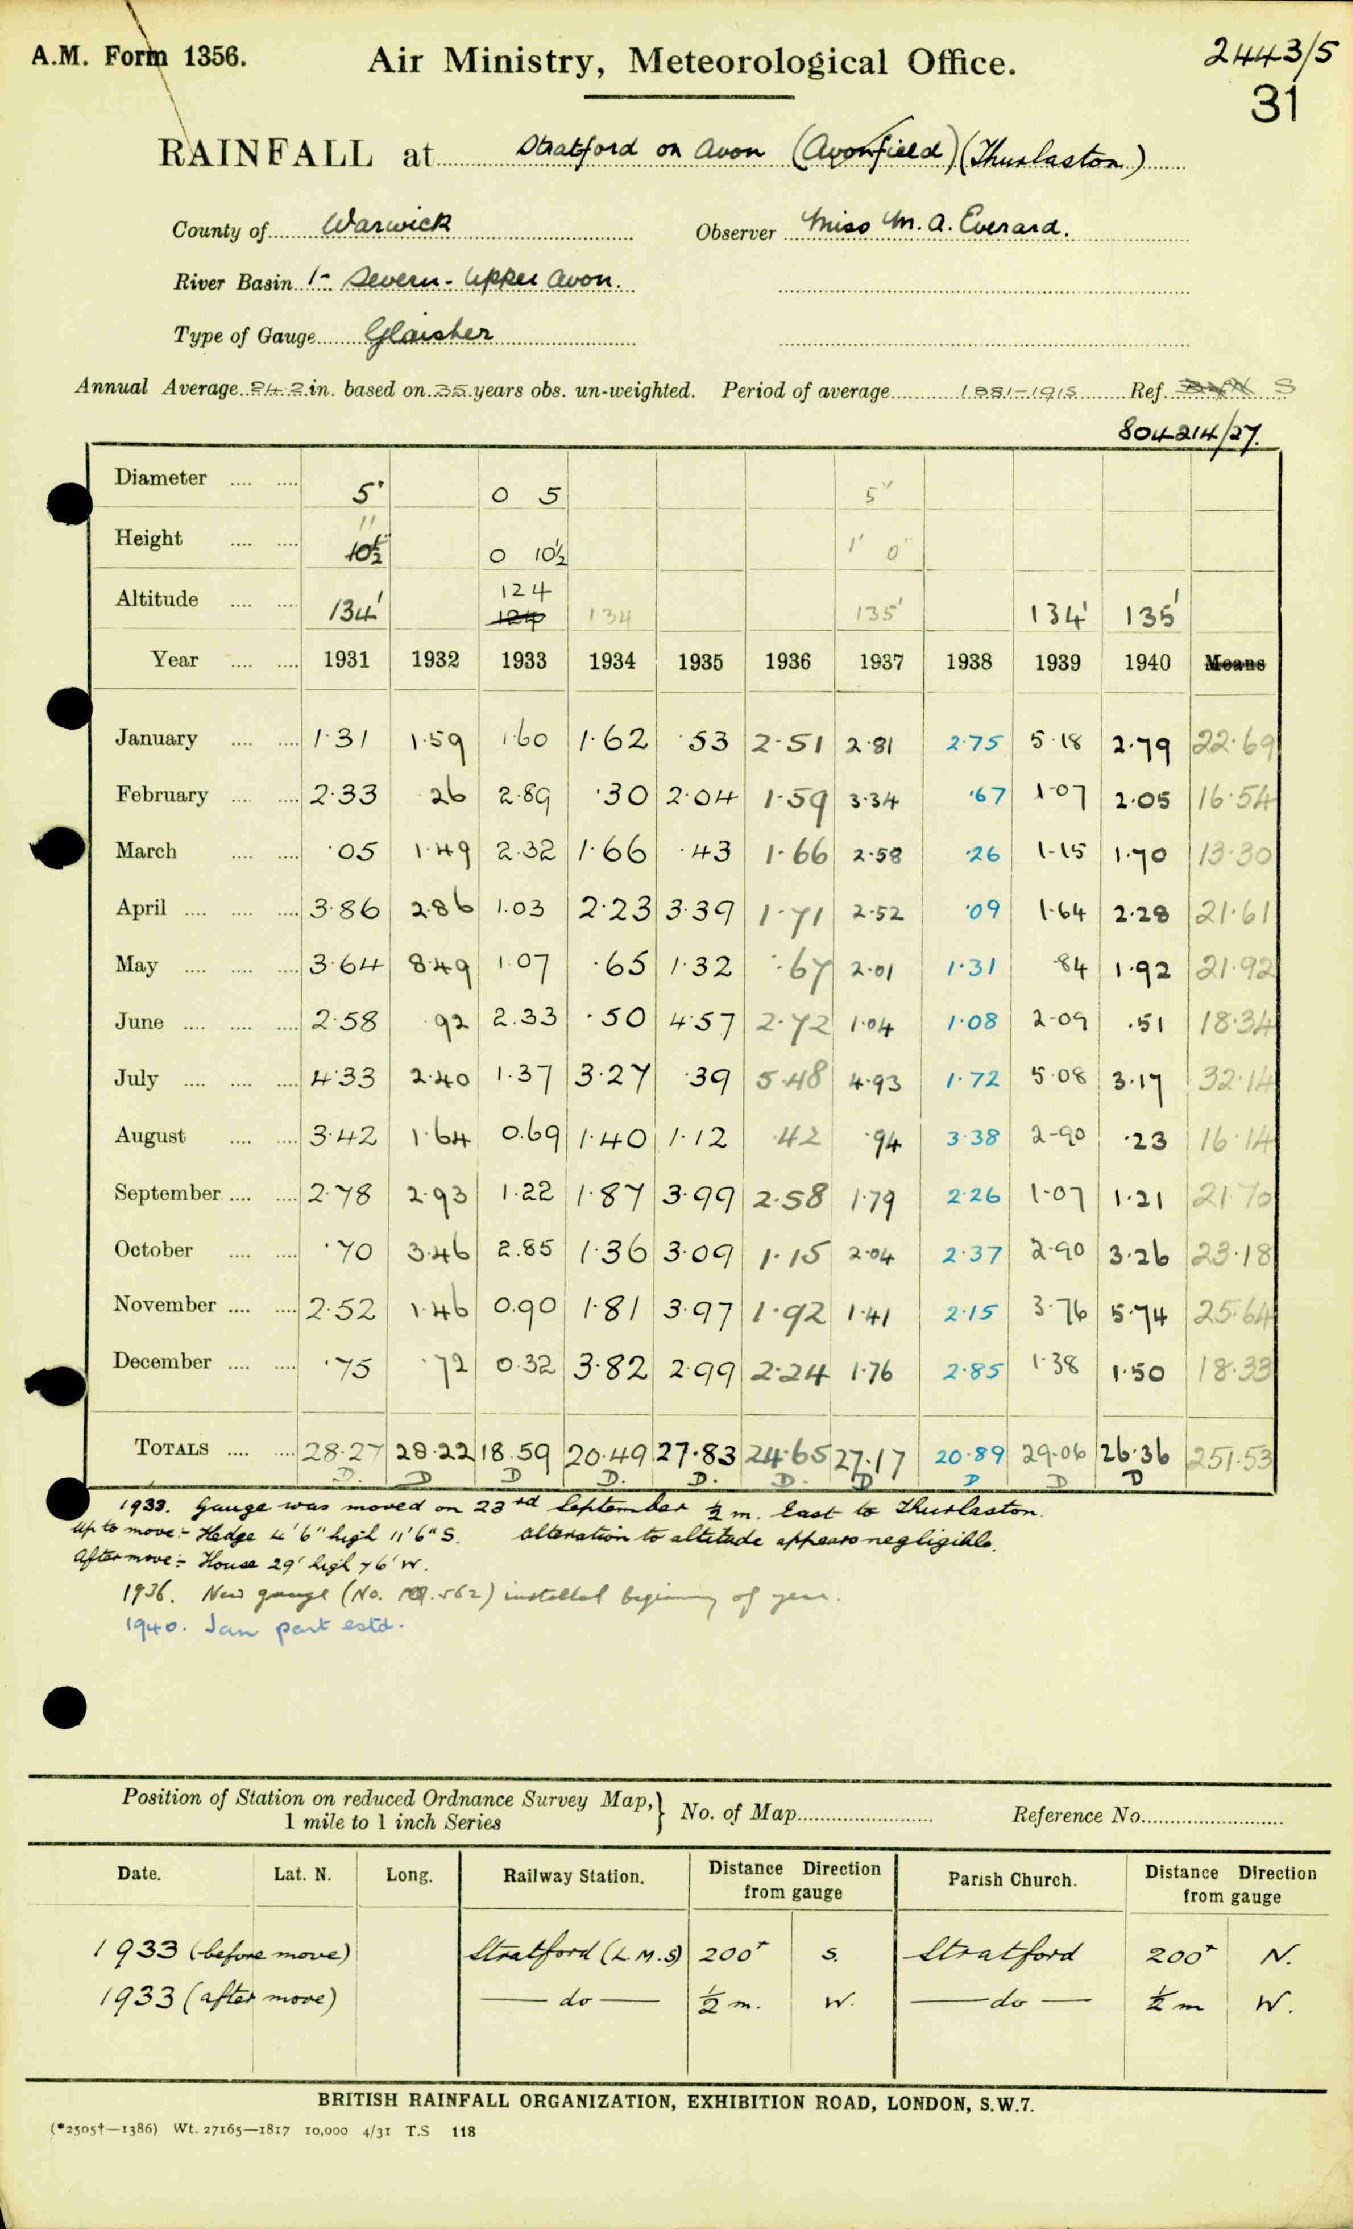 A.M. Form 1356. Air Ministry, Meteorological Office. 2443/5
31
RAINFALL at Stratford on Avon (Avonfield) (Thurlaston)
County of Warwick Observer Miss M. A. Everard.
River Basin 1- Severn - Upper Avon.
Type of Gauge Glaisher
Annual Average 24.2 in. based on 35 years obs. un-weighted. Period of average 1881-1915 Ref. S
804214/27.
Diameter .... .... 5" 0 5 5"
Height .... .... 11" 10½" 0 10½ 1' 0"
Altitude .... .... 134' 124 124 134 135' 134' 135'
Year .... .... 1931 1932 1933 1934 1935 1936 1937 1938 1939 1940 Means
January .... .... 1.31 1.59 1.60 1.62 .53 2.51 2.81 2.75 5.18 2.79 22.69
February .... .... 2.33 .26 2.89 .30 2.04 1.59 3.34 .67 1.07 2.05 16.54
March .... .... .05 1.49 2.32 1.66 .43 1.66 2.58 .26 1.15 1.70 13.30
April .... .... .... 3.86 2.86 1.03 2.23 3.39 1.71 2.52 .09 1.64 2.28 21.61
May .... .... .... 3.64 8.49 1.07 .65 1.32 .67 2.01 1.31 .84 1.92 21.92
June .... .... .... 2.58 .92 2.33 .50 4.57 2.72 1.04 1.08 2.09 .51 18.34
July .... .... .... 4.33 2.40 1.37 3.27 .39 5.48 4.93 1.72 5.08 3.17 32.14
August .... .... 3.42 1.64 0.69 1.40 1.12 .42 .94 3.38 2.90 .23 16.14
September .... .... 2.78 2.93 1.22 1.87 3.99 2.58 1.79 2.26 1.07 1.21 21.70
October .... .... .70 3.46 2.85 1.36 3.09 1.15 2.04 2.37 2.90 3.26 23.18
November .... .... 2.52 1.46 0.90 1.81 3.97 1.92 1.41 2.15 3.76 5.74 25.64
December .... .... .75 .72 0.32 3.82 2.99 2.24 1.76 2.85 1.38 1.50 18.33
TOTALS .... .... 28.27 28.22 18.59 20.49 27.83 24.65 27.17 20.89 29.06 26.36 251.53
D. D D D. D. D. D D D D
1933. Gauge was moved on 23rd September ½ m. East to Thurlaston.
Up to move:- Hedge 4' 6" high 11' 6" S. alteration to altitude appears negligible.
After move:- House 29' high 76' W.
1936. New gauge (No. .562) installed beginning of year.
1940. Jan part estd.
Position of Station on reduced Ordnance Survey Map, } No. of Map Reference No.
1 mile to 1 inch Series
Date. Lat. N. Long. Railway Station. Distance Direction from gauge Parish Church. Distance Direction from gauge
1933 (before move) Stratford (L.M.S) 200+ S. Stratford 200+ N.
1933 (after move) — do — ½ m. W. — do — ½ m W.
BRITISH RAINFALL ORGANIZATION, EXHIBITION ROAD, LONDON, S.W.7.
(*2505†—1386) Wt. 27165—1817 10,000 4/31 T.S 118